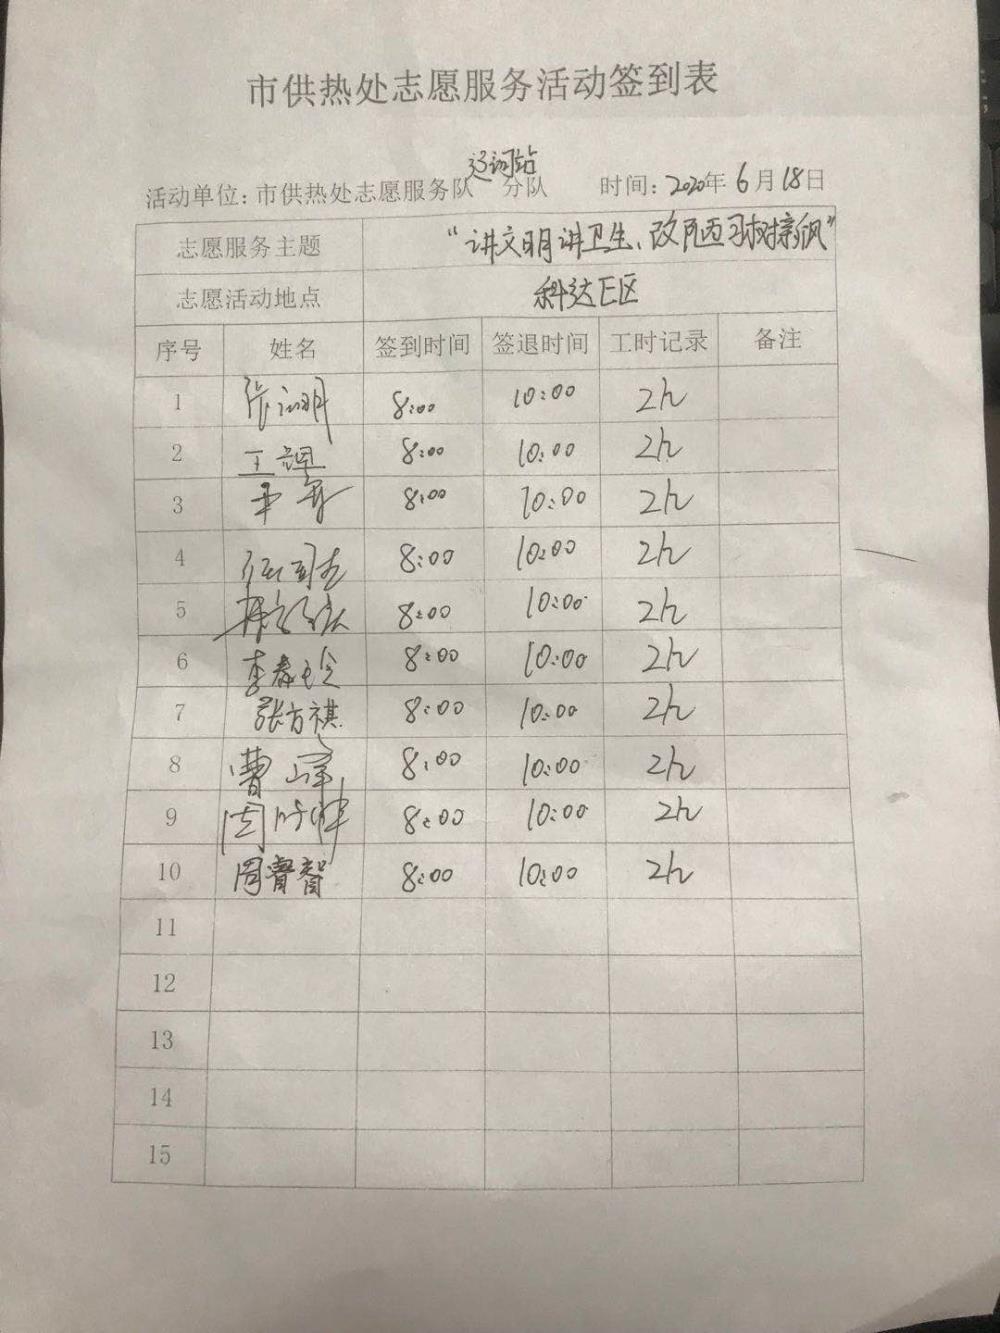 市供热处志愿服务活动签到表
辽河站
活动单位:市供热处志愿服务队 分队 时间:2020年6月18日
志愿服务主题 "讲文明讲卫生、改陋习树新风"
志愿活动地点 科达E区
序号 姓名 签到时间 签退时间 工时记录 备注
1 8:00 10:00 2h
2 8:00 10:00 2h
3 8:00 10:00 2h
4 8:00 10:00 2h
5 8:00 10:00 2h
6 李春玲 8:00 10:00 2h
7 张方祺 8:00 10:00 2h
8 曹峰 8:00 10:00 2h
9 8:00 10:00 2h
10 周睿智 8:00 10:00 2h
11
12
13
14
15